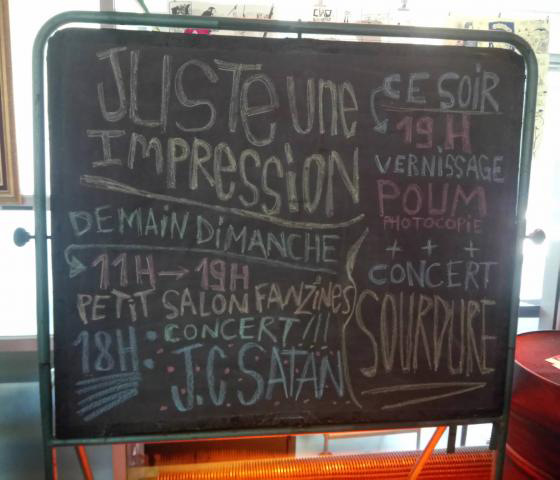 JUSTE une
IMPRESSION
DEMAIN DIMANCHE
11H → 19H
PETIT SALON FANZINES
CONCERT!!!
18H: J.C SATAN
CE SOIR
19H
VERNISSAGE
POUM
PHOTOCOPIE
+ + +
CONCERT
SOURDURE